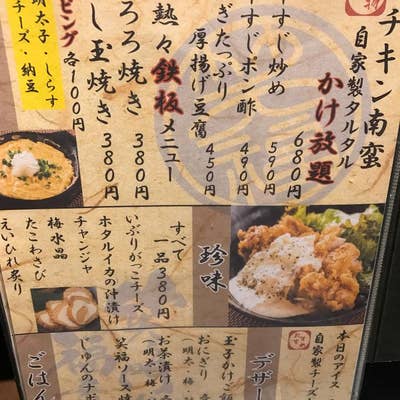 チキン南蛮
自家製タルタル
かけ放題
680円
すじ炒め 590円
すじポン酢 490円
ぎたっぷり
厚揚げ豆腐 450円
熱々鉄板メニュー
ろろ焼き 380円
し玉焼き 380円
ピング 各100円
明太子・しらす
チーズ・納豆
珍味
すべて
一品380円
いぶりがっこチーズ
ホタルイカの沖漬け
チャンジャ
梅水晶
たこわさび
えいひれ炙り
デザー
本日のアイス
自家製チーズ
ごはん
玉子かけご飯
おにぎり
(明太・梅・
お茶漬け
(明太・梅・
笑福ソース焼
じゅんのナポ